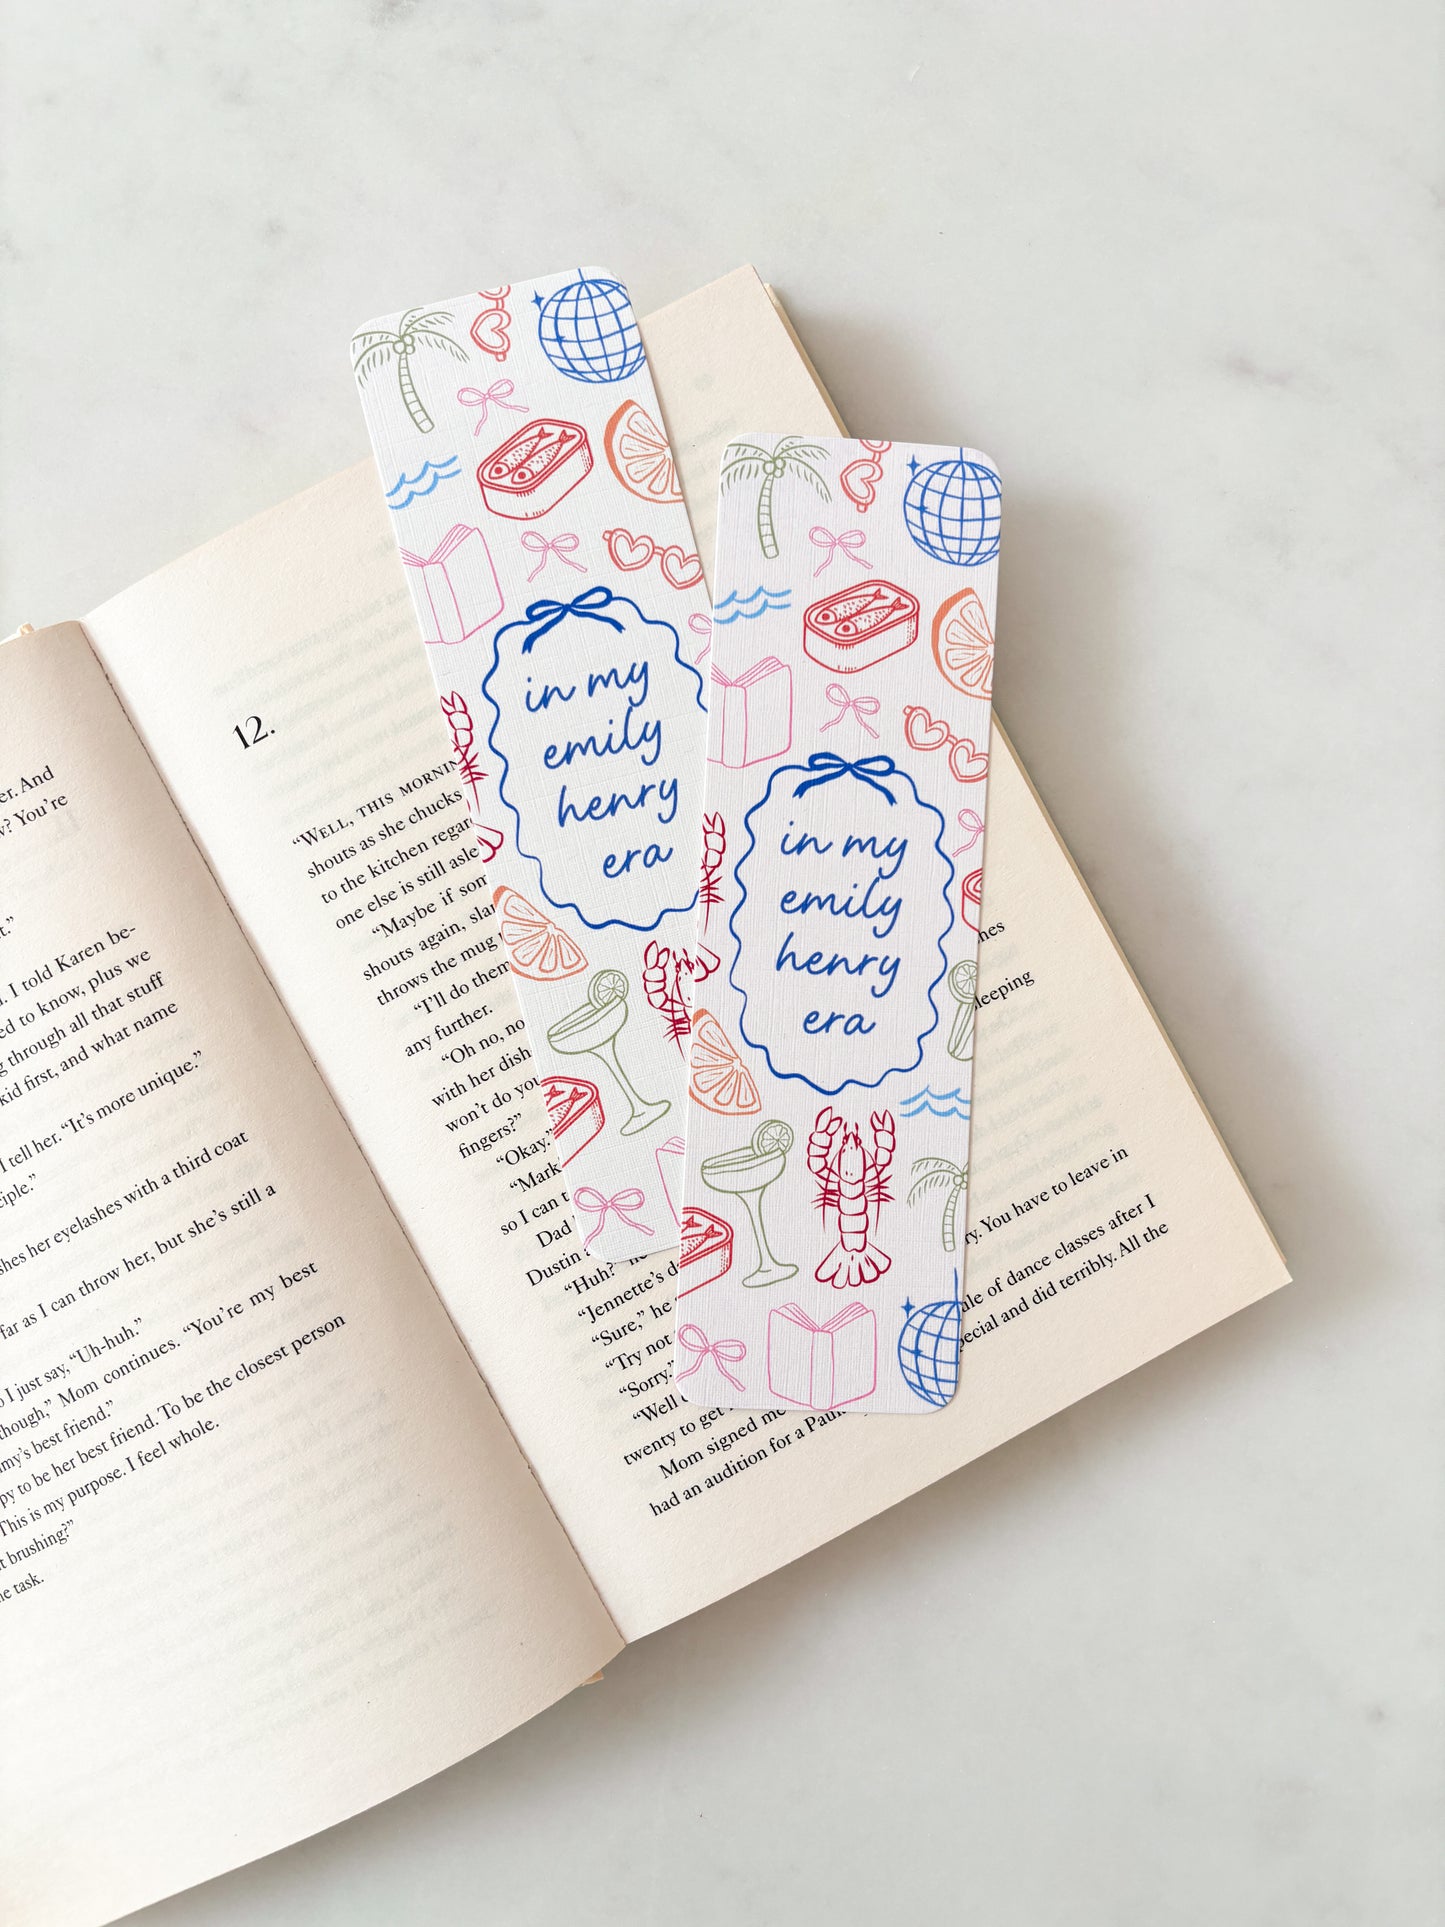 er. And
? You’re
t.”
. I told Karen be-
ed to know, plus we
g through all that stuff
kid first, and what name
I tell her. “It’s more unique.”
ciple.”
shes her eyelashes with a third coat
far as I can throw her, but she’s still a
I just say, “Uh-huh.”
though,” Mom continues. “You’re my best
my’s best friend.”
py to be her best friend. To be the closest person
This is my purpose. I feel whole.
t brushing?”
he task.
12.
“Well, this mornin
shouts as she chucks
to the kitchen regar
one else is still asle
“Maybe if som
shouts again, slar
throws the mug
“I’ll do them
any further.
“Oh no, no
with her dish
won’t do you
fingers?”
“Okay.”
“Mark
so I can t
Dad
Dustin a
“Huh?” he
“Jennette’s d
“Sure,” he
“Try not
“Sorry.”
“Well
twenty to get
Mom signed me
had an audition for a Paul
hes
leeping
ry. You have to leave in
ule of dance classes after I
pecial and did terribly. All the
in my
emily
henry
era
in my
emily
henry
era